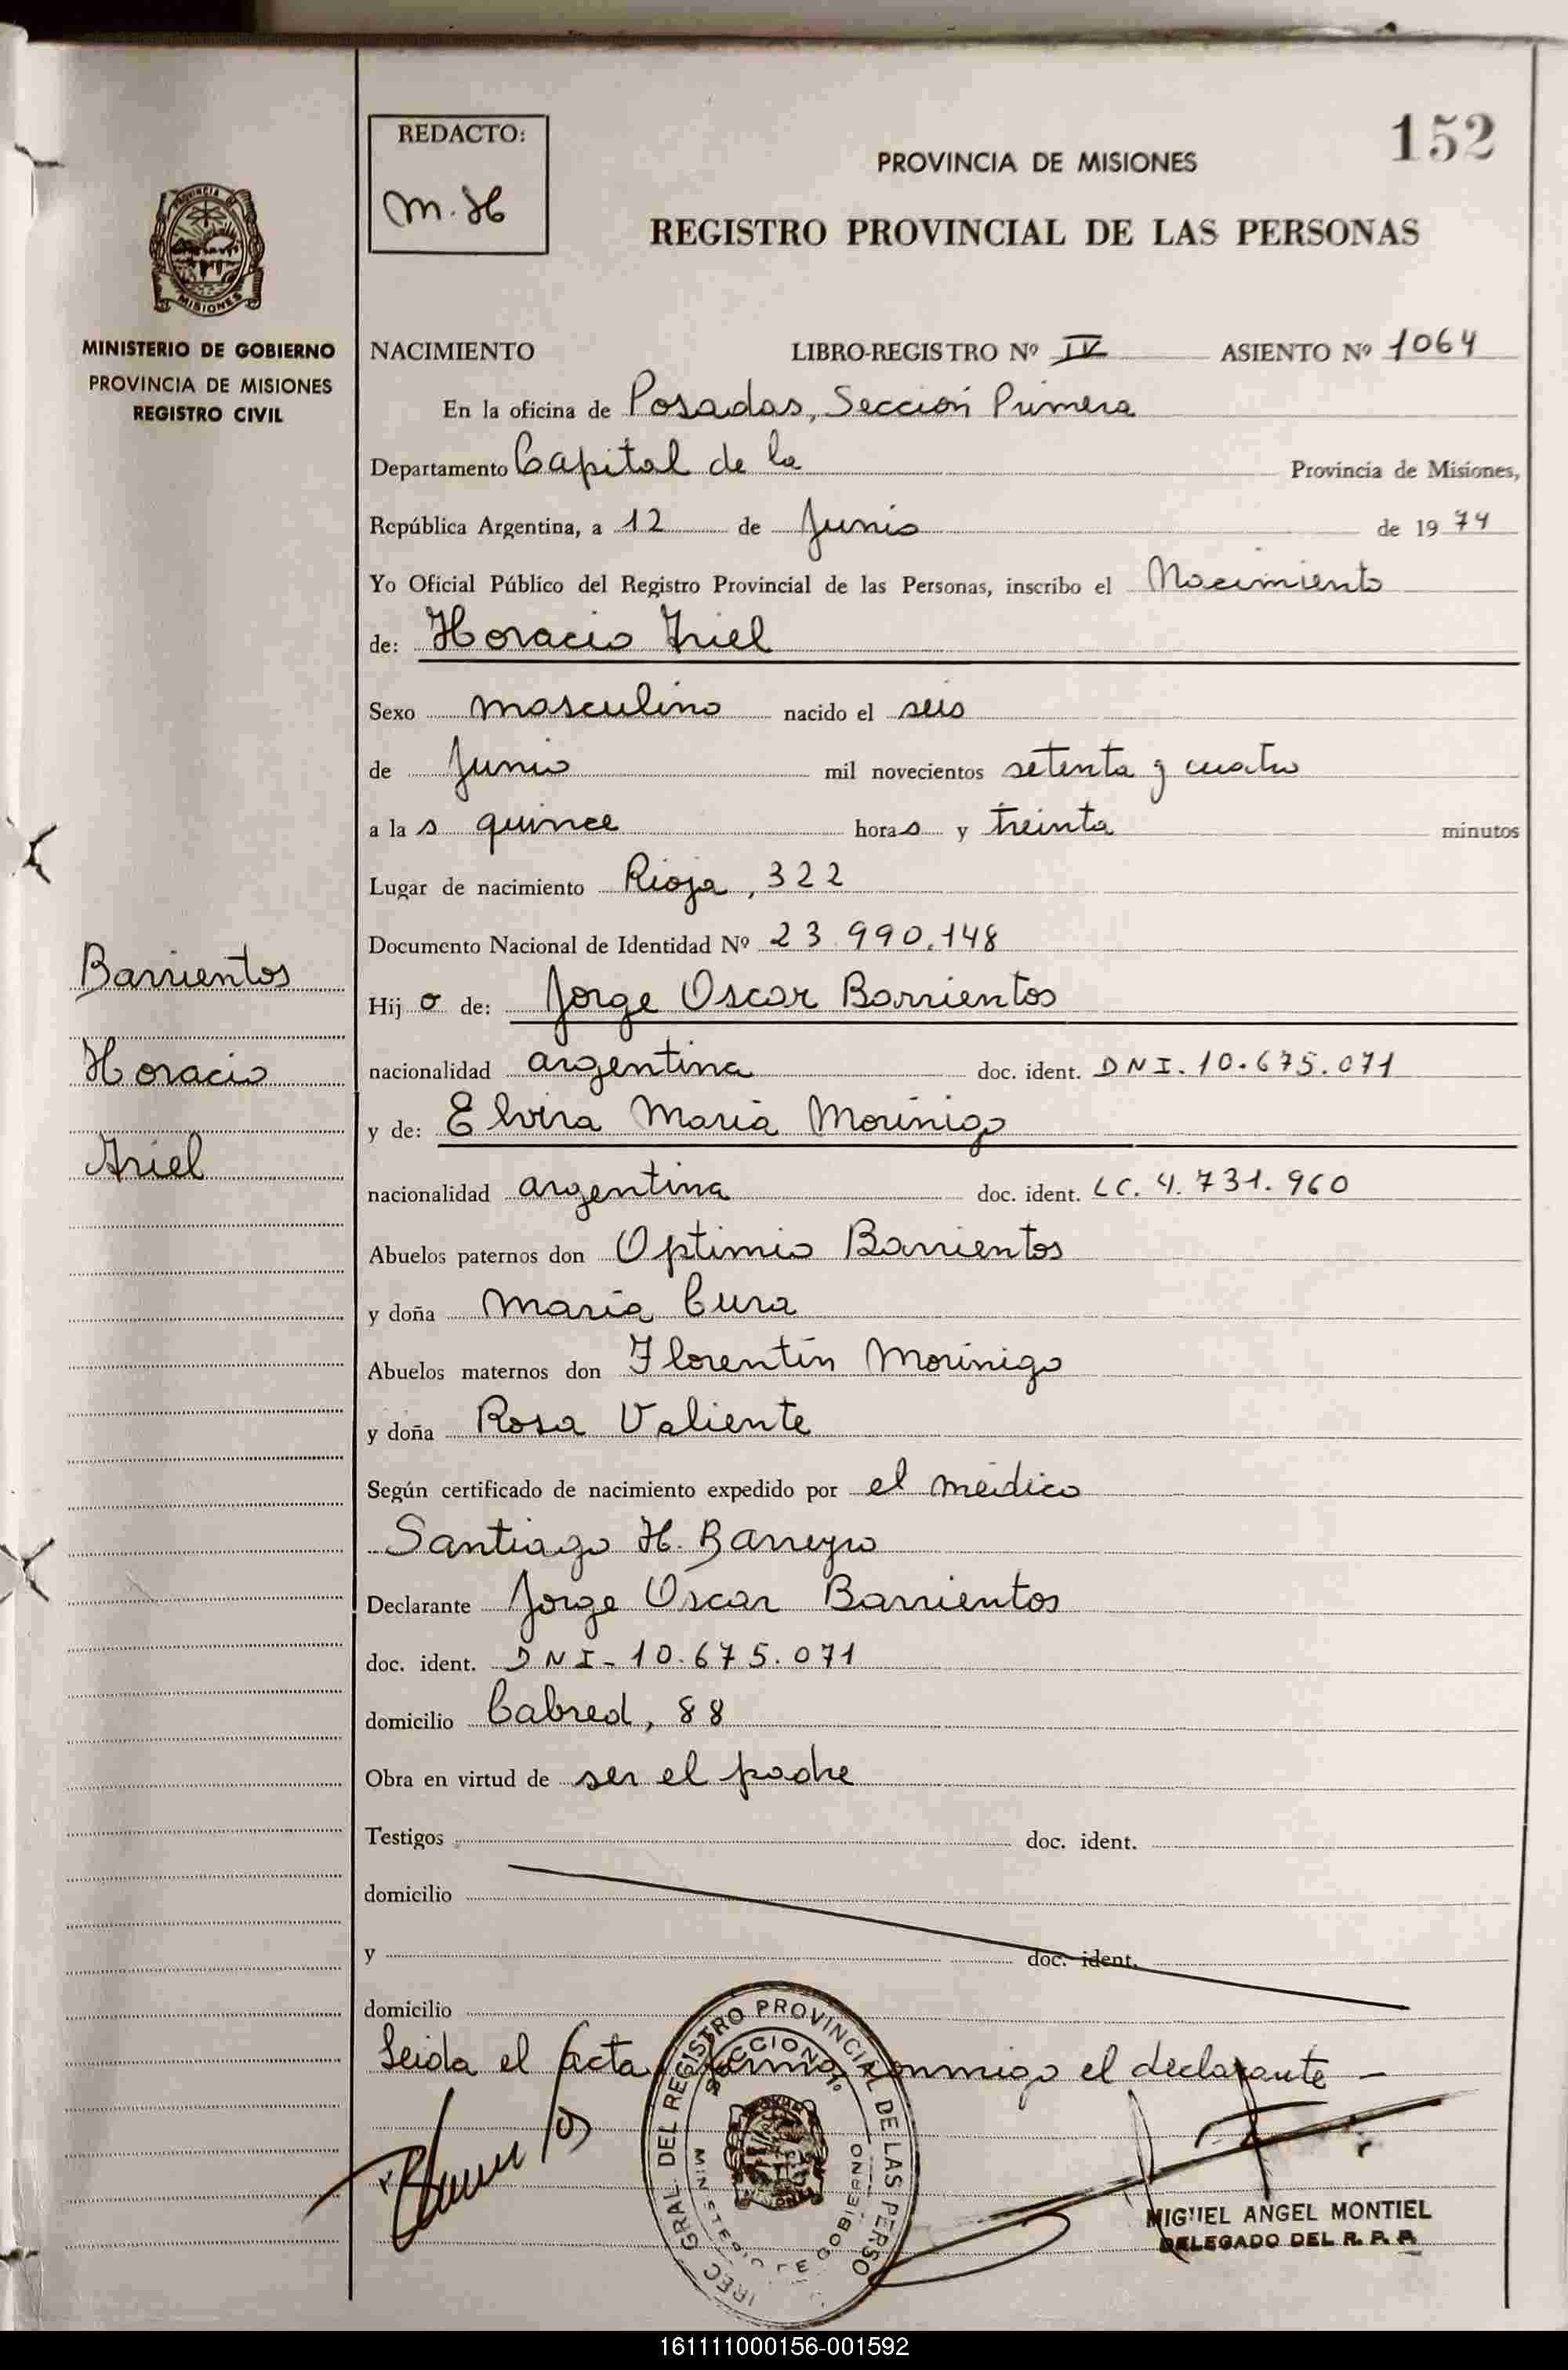 152
REDACTO:
M. H
PROVINCIA DE MISIONES
REGISTRO PROVINCIAL DE LAS PERSONAS
PROVINCIA DE
MISIONES
MINISTERIO DE GOBIERNO
PROVINCIA DE MISIONES
REGISTRO CIVIL
NACIMIENTO LIBRO-REGISTRO Nº IV ASIENTO Nº 1064
En la oficina de Posadas, Sección Primera
Departamento Capital de la Provincia de Misiones,
República Argentina, a 12 de Junio de 1974
Yo Oficial Público del Registro Provincial de las Personas, inscribo el Nacimiento
de: Horacio Ariel
Sexo masculino nacido el seis
de Junio mil novecientos setenta y cuatro
a las quince horas y treinta minutos
Lugar de nacimiento Rioja, 322
Documento Nacional de Identidad Nº 23.990.148
Barrientos
Horacio
Ariel
Hijo de: Jorge Oscar Barrientos
nacionalidad argentina doc. ident. DNI. 10.675.071
y de: Elvira María Morínigo
nacionalidad argentina doc. ident. LC. 4.731.960
Abuelos paternos don Optimio Barrientos
y doña María Cura
Abuelos maternos don Florentín Morínigo
y doña Rosa Valiente
Según certificado de nacimiento expedido por el médico
Santiago H. Barreyro
Declarante Jorge Oscar Barrientos
doc. ident. DNI - 10.675.071
domicilio Cabred, 88
Obra en virtud de ser el padre
Testigos doc. ident.
domicilio
y doc. ident.
domicilio
Leida el acta firma conmigo el declarante -
DIREC. GRAL. DEL REGISTRO PROVINCIAL DE LAS PERSO
SECCION 1º
MINISTERIO DE GOBIERNO
MIGUEL ANGEL MONTIEL
DELEGADO DEL R. P. P.
161111000156-001592